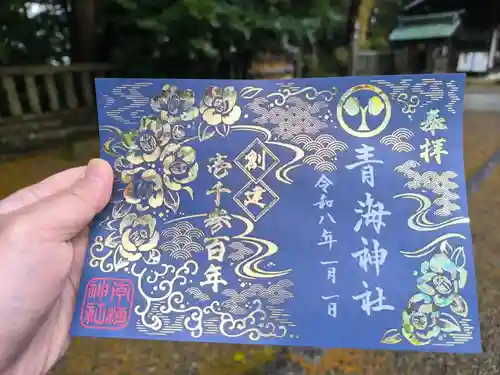 奉拝
青海神社
令和八年一月一日
創建
壱千参百年
青海神社